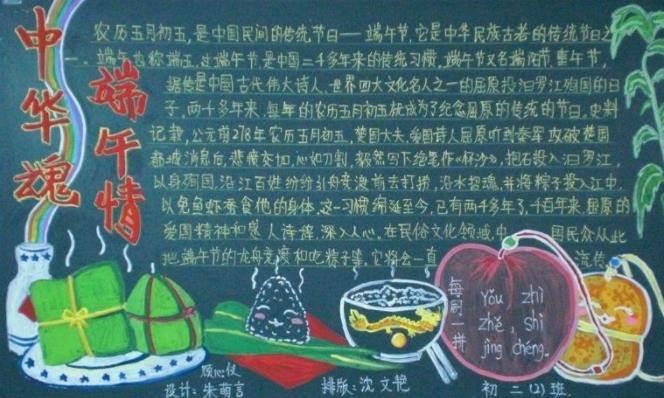 中华魂
端午情
农历五月初五,是中国民间的传统节日——端午节,它是中华民族古老的传统节日之
一。端午也称端五,过端午节,是中国二千多年来的传统习惯,端午节又名端阳节,重午节,
据传是中国古代伟大诗人,世界四大文化名人之一的屈原投汨罗江殉国的日
子,两千多年来,每年的农历五月初五就成为了纪念屈原的传统的节日。史料
记载,公元前278年农历五月初五,楚国大夫,爱国诗人屈原听到秦军攻破楚国
都城消息后,悲愤交加,心如刀割,毅然写下绝笔作《怀沙》,抱石投入汨罗江,
以身殉国,沿江百姓纷纷引舟竞渡前去打捞,沿水招魂,并将粽子投入江中,
以免鱼虾蚕食他的身体,这一习惯绵延至今,已有两千多年了,千百年来,屈原的
爱国精神和感人诗辞,深入人心,在民俗文化领域,中 国民众从此
把端午节的龙舟竞渡和吃粽子等,它将会一直 流传
每周一拼
Yǒu zhì
zhě, shì
jìng chéng.
设计:朱萌言
排版:沈文艳
初二(2)班